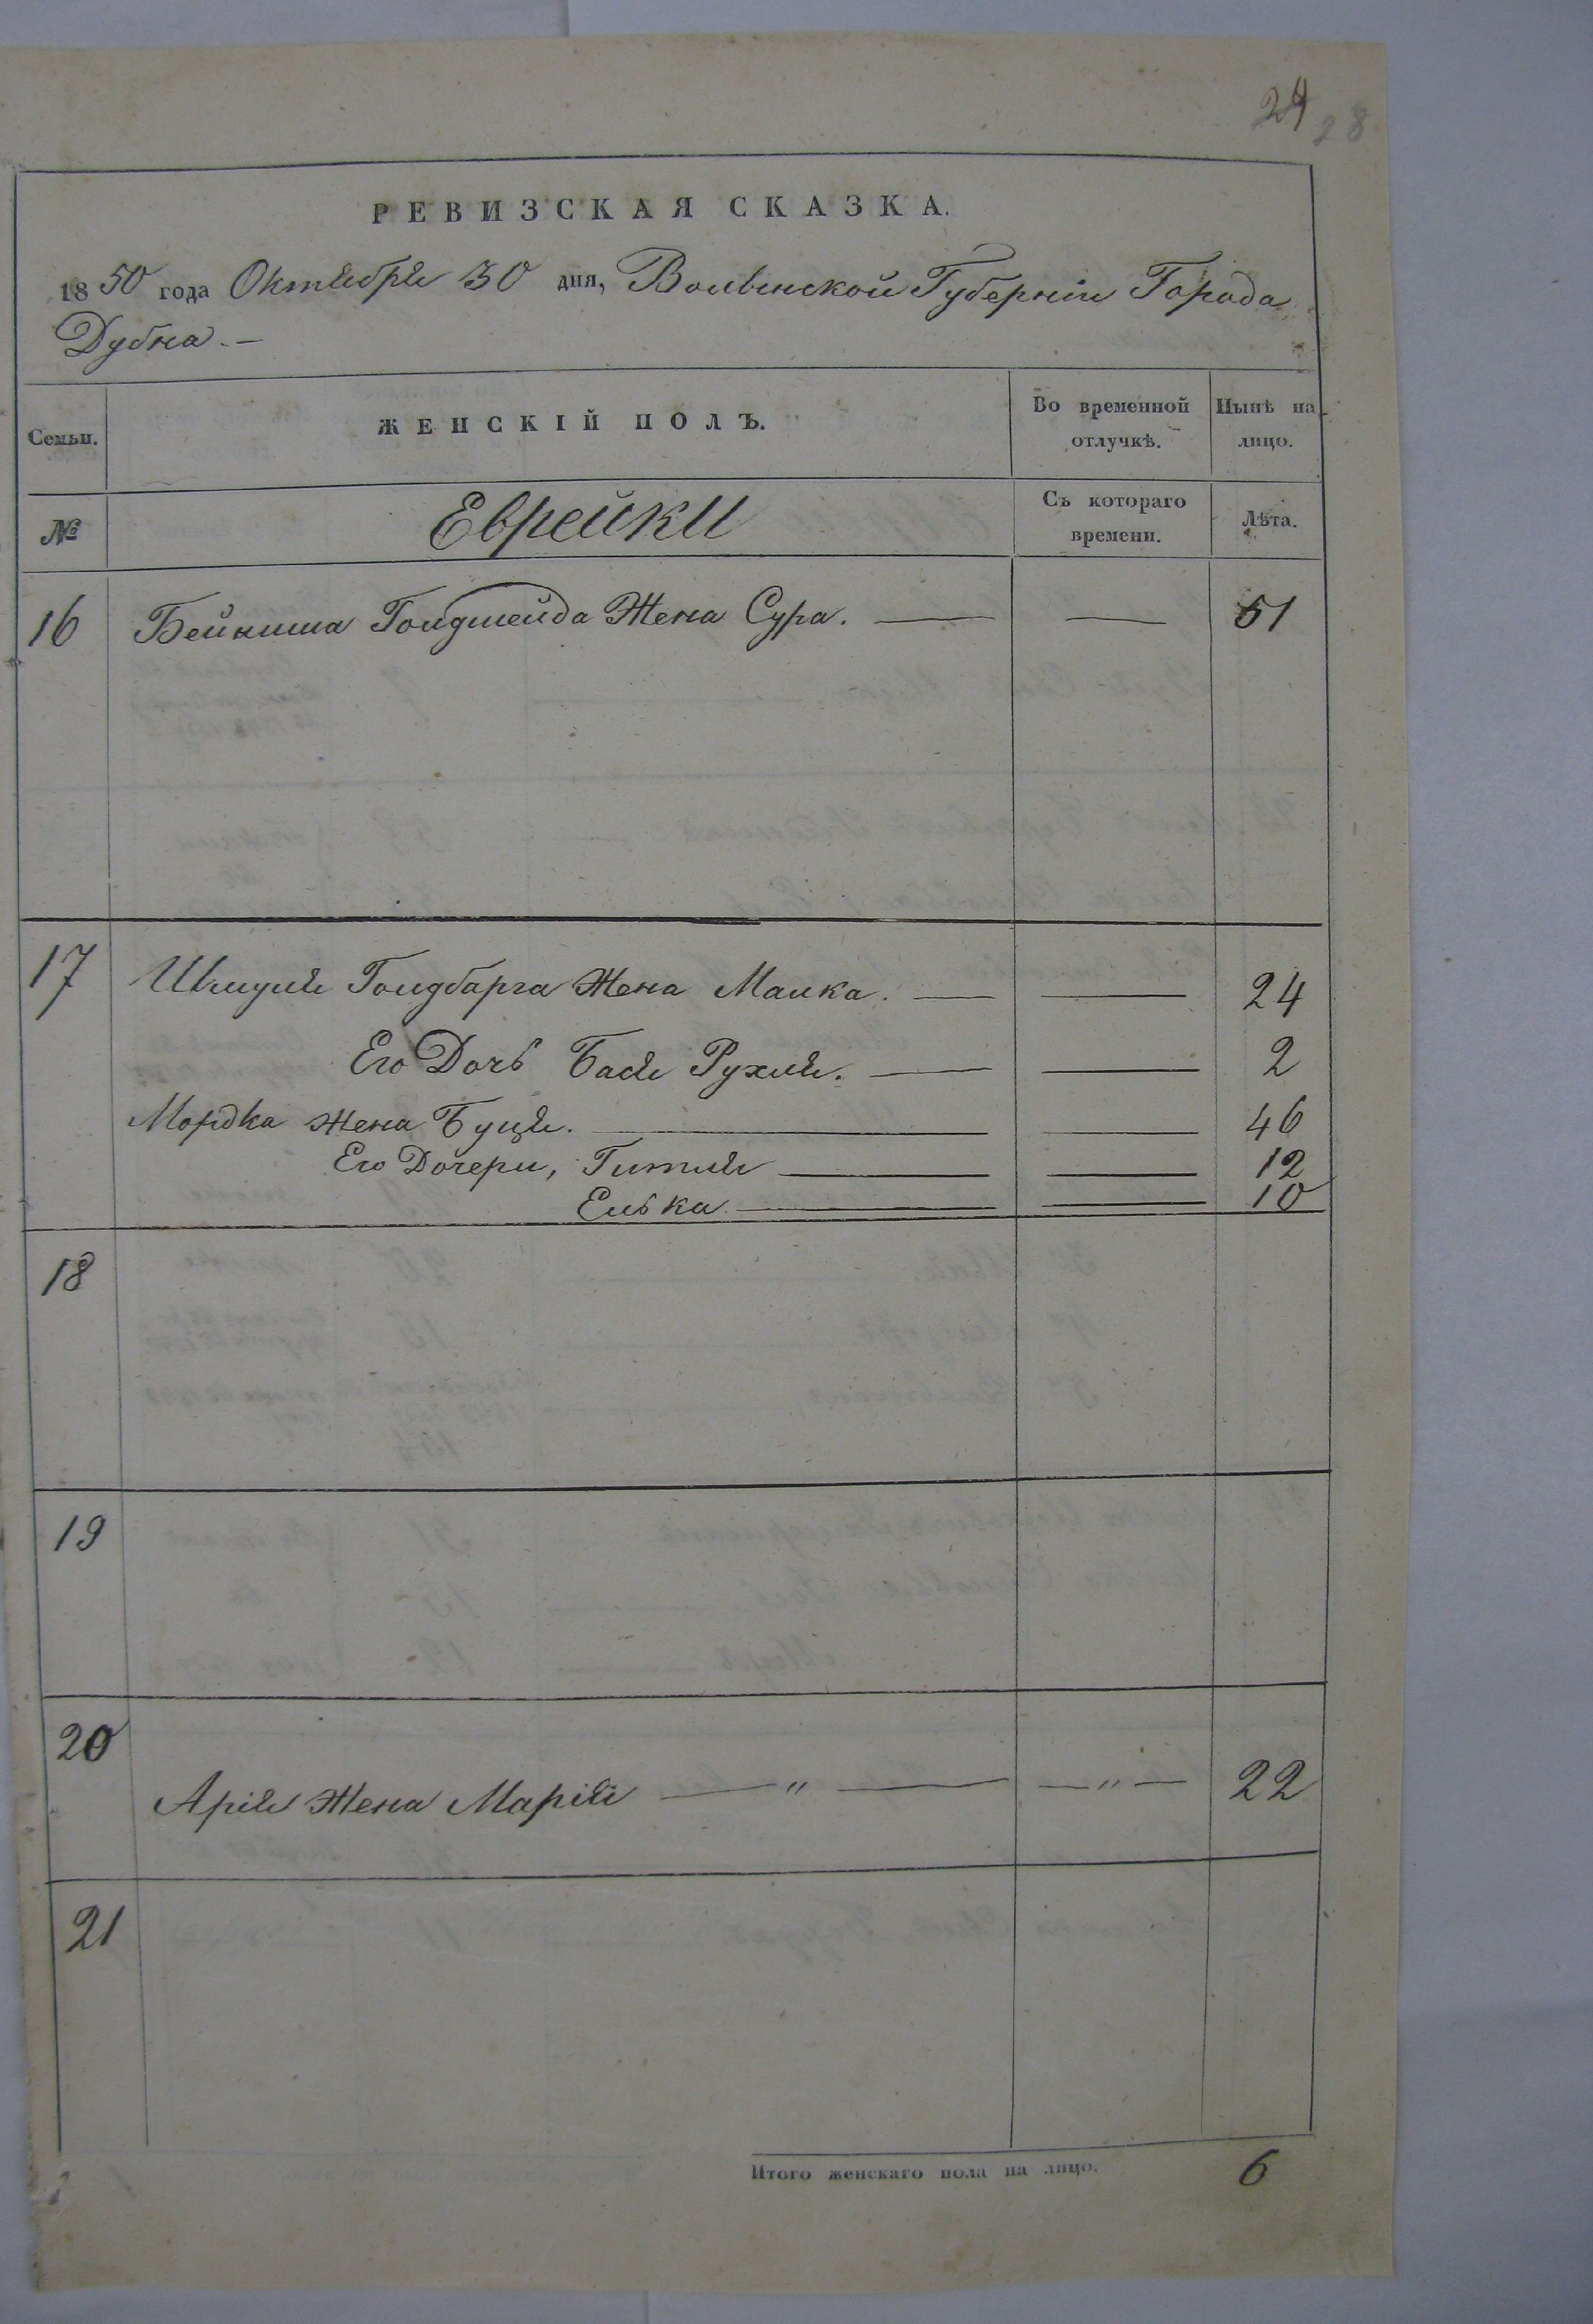 29 28
РЕВИЗСКАЯ СКАЗКА.
1850 года Октября 30 дня, Волынской Губерніи Города
Дубна. —
Семьи. ЖЕНСКІЙ ПОЛЪ. Во временной отлучкѣ. Нынѣ на лицо.
№ Еврейки Съ котораго времени. Лѣта.
16 Бейниша Голдшейда Жена Сура. — — 51
17 Шмуля Голдбарга Жена Малка. — — 24
Его Дочь Бася Рухля. — — 2
Мордка жена Буця. — — 46
Его Дочери, Гитля — — 12
Елька — — 10
18
19
20 Арія Жена Марія — " — — " — 22
21
Итого женскаго пола на лицо. 6